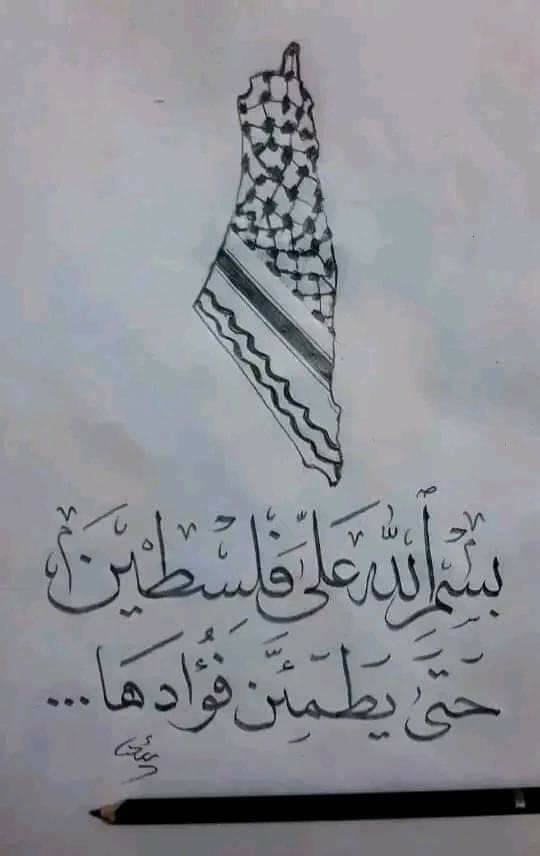 بِسْمِ ٱللّٰهِ عَلَىٰ فِلَسْطِيْنَ
حَتَّىٰ يَطْمَئِنَّ فُؤَادَهَا...